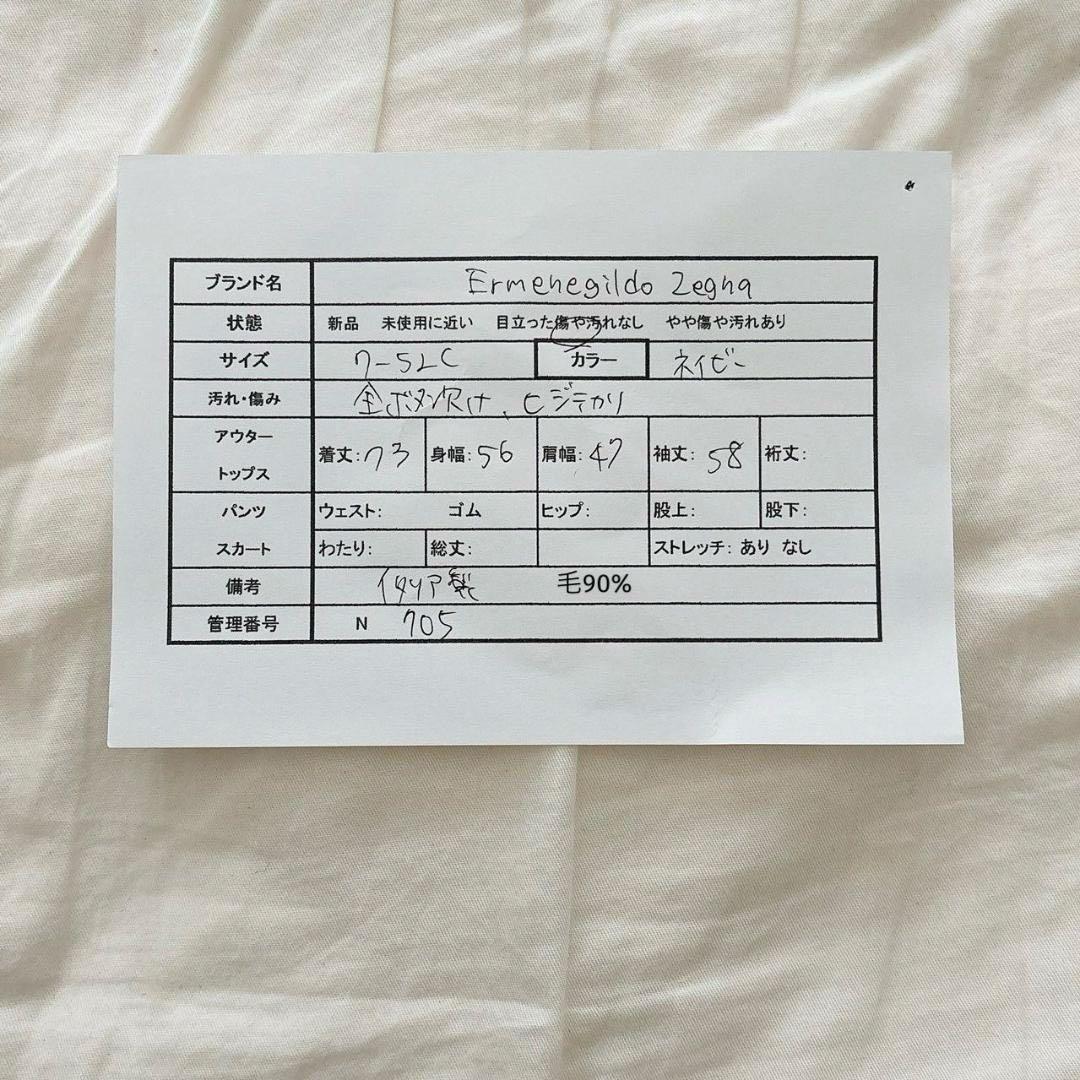 ブランド名 Ermenegildo Zegna
状態 新品 未使用に近い 目立った傷や汚れなし やや傷や汚れあり
サイズ 7-52C カラー ネイビー
汚れ・傷み 金ボタン欠け、ヒジテカリ
アウター
トップス
着丈:73 身幅:56 肩幅:47 袖丈:58 裄丈:
パンツ ウェスト: ゴム ヒップ: 股上: 股下:
スカート わたり: 総丈: ストレッチ: あり なし
備考 イタリア製 毛90%
管理番号 N 705